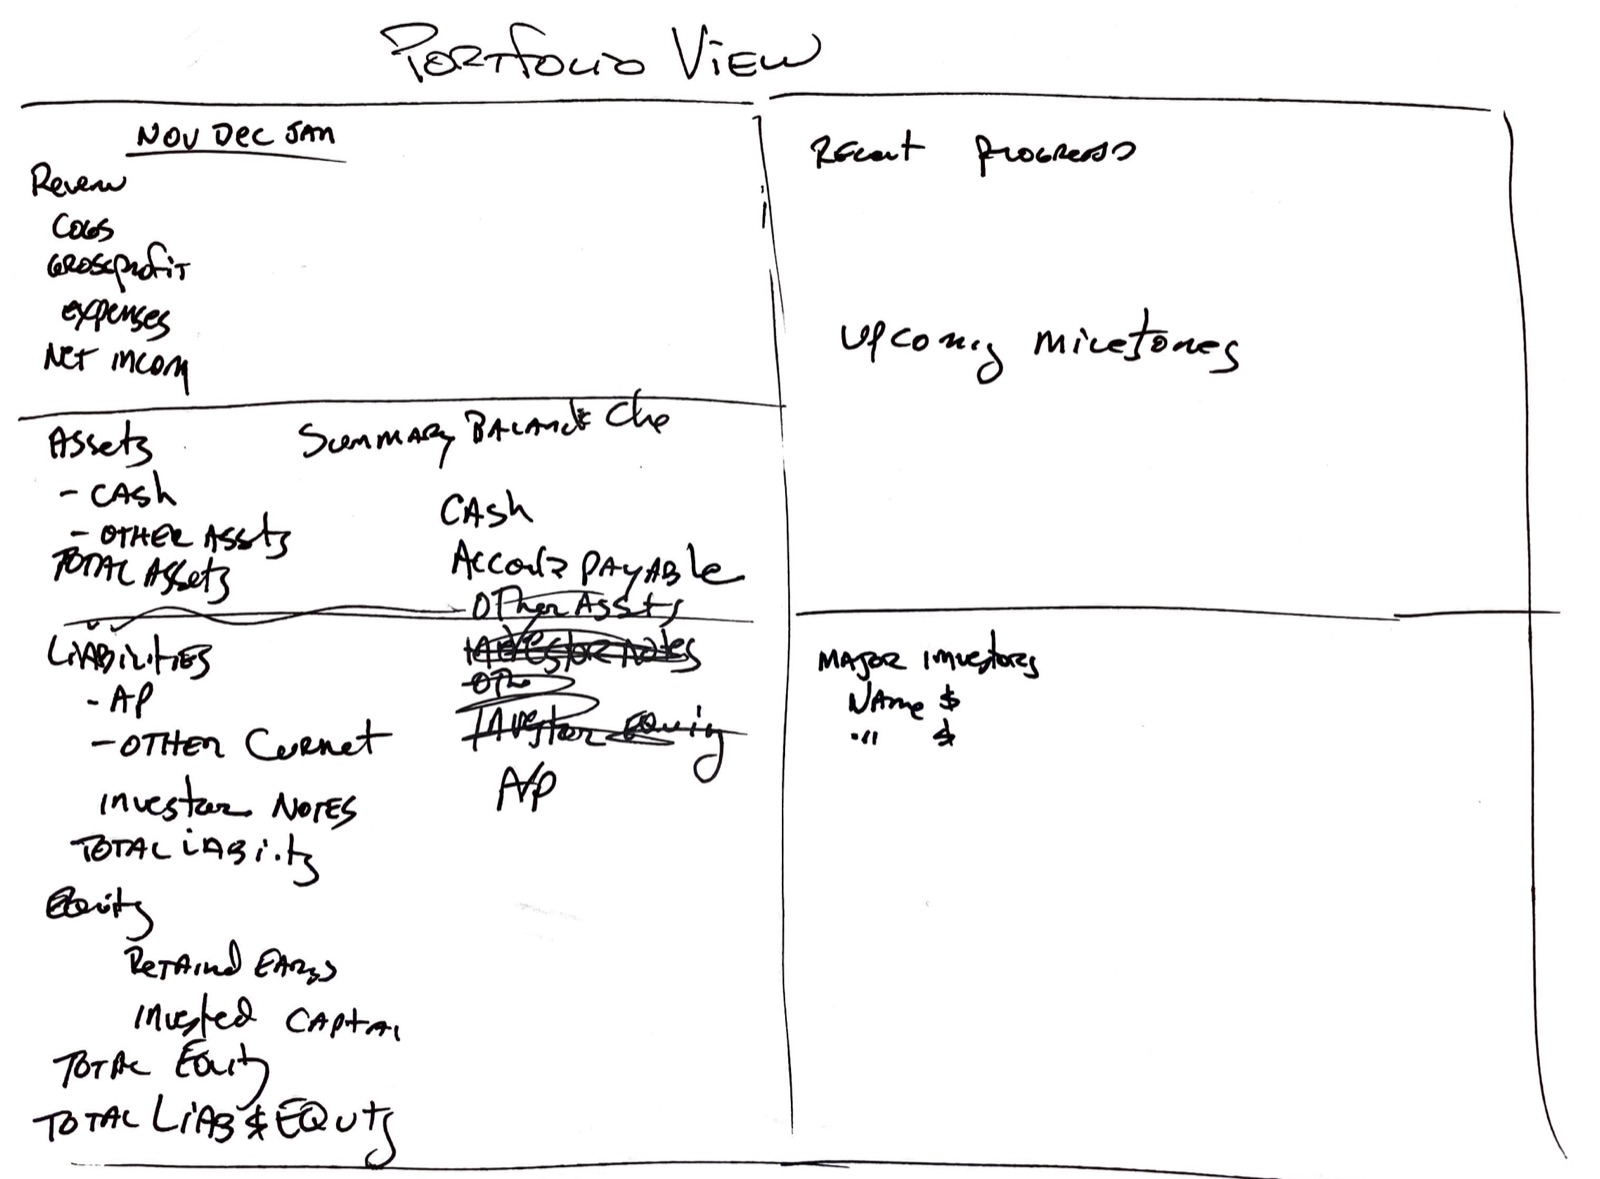 Portfolio View
NOV DEC JAN
Reven
COGS
Grossprofit
expenses
Net incom
Assets
- CASH
- OTHER Assets
TOTAL Assets
Summary Balance She
CASH
Accounts PAYABLE
Other Assets
Investor Notes
Oth
Investor Equity
A/P
LIABILITIES
- AP
- OTHER Current
Investor NOTES
TOTAL LIABility
Equity
Retained EARNGS
Invested CAPITAL
TOTAL Equity
TOTAL LIAB & EQUITY
Recent Progress
Upcoming milestones
Major Investors
Name $
" $